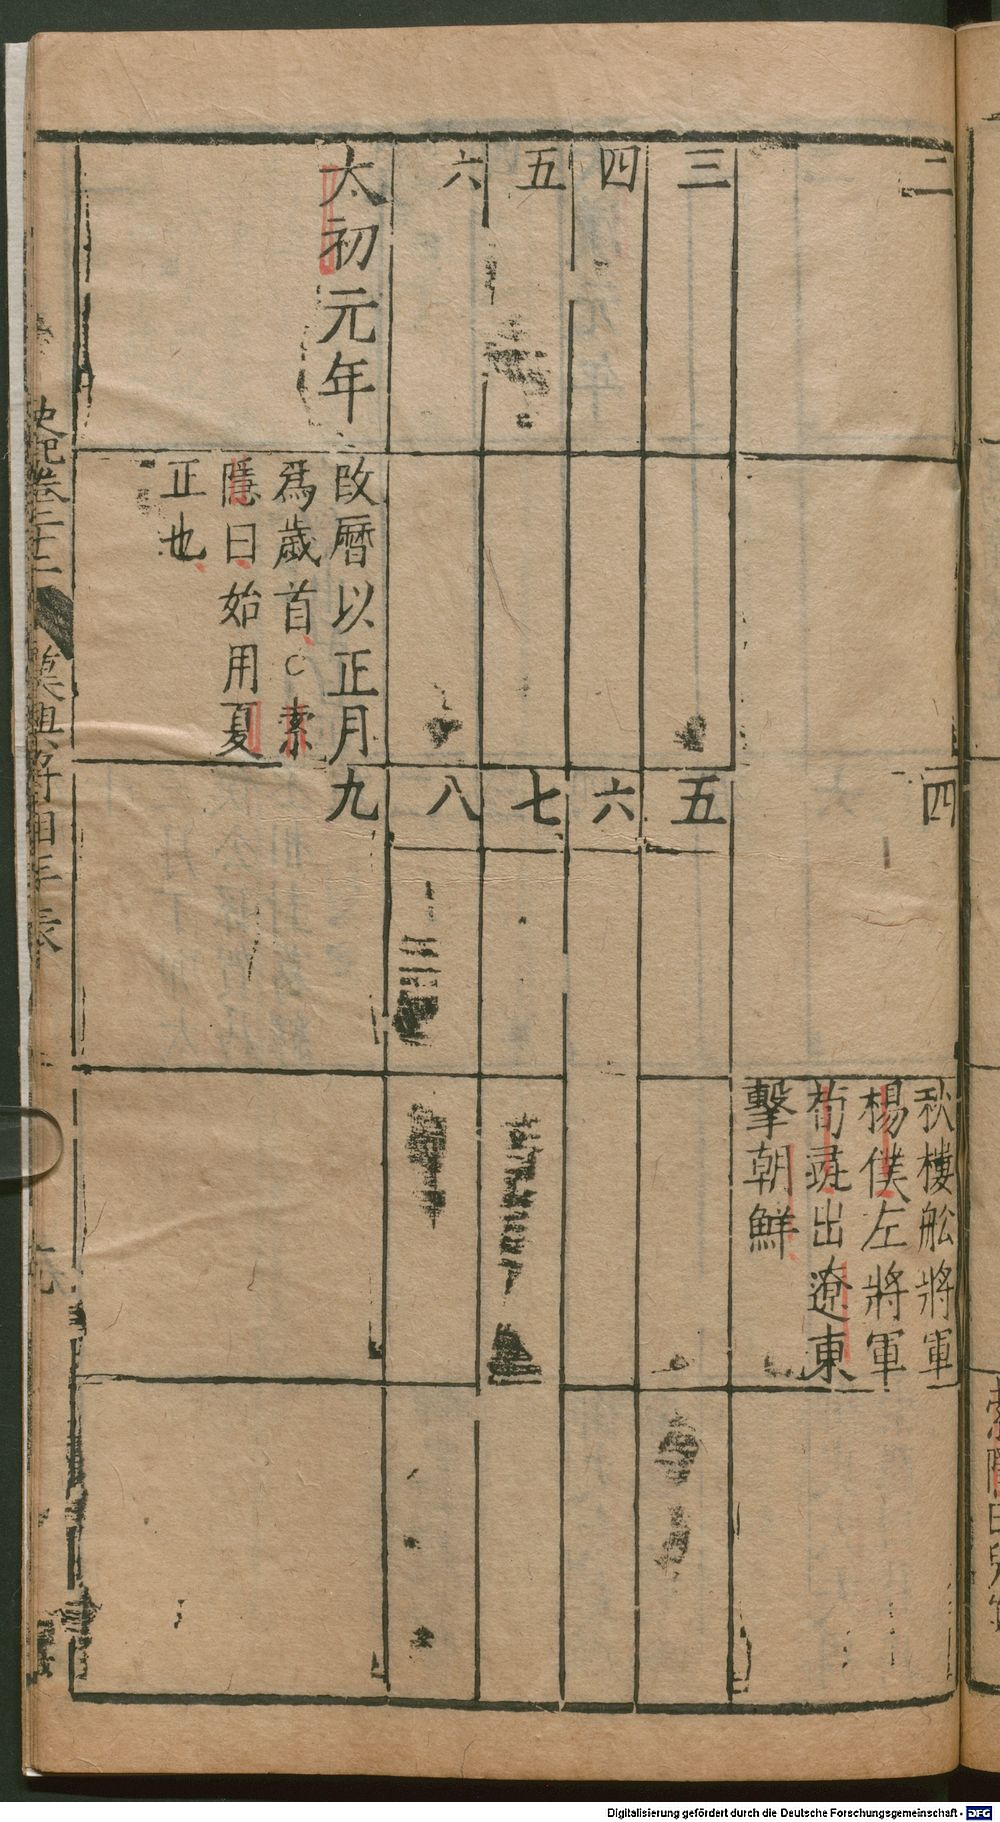 二
四
秋樓舩將軍
楊僕左將軍
荀彘出遼東
擊朝鮮
三
五
四
六
五
七
六
八
太初元年
改曆以正月
爲歲首○索
隱曰始用夏
正也
九
史記卷二十二
漢興將相年表
Digitalisierung gefördert durch die Deutsche Forschungsgemeinschaft - DFG